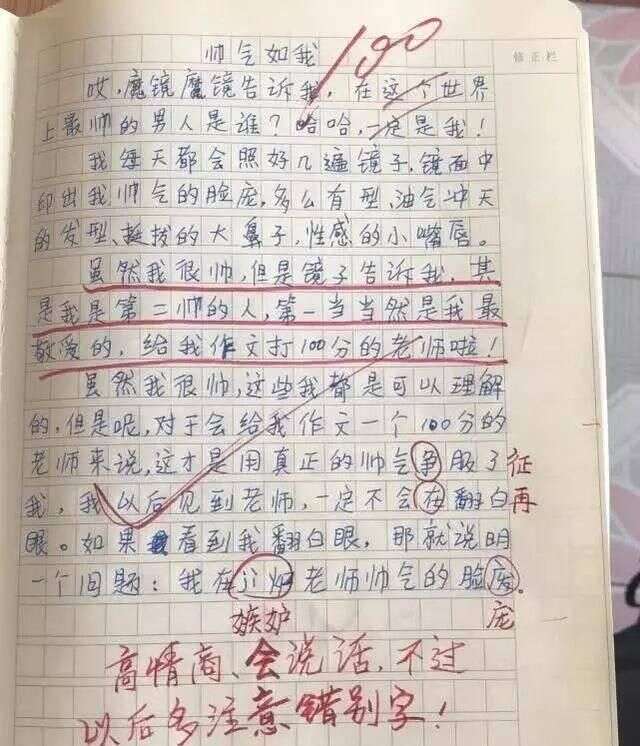 帅气如我
100
修正栏
哎,魔镜魔镜告诉我,在这个世界
上最帅的男人是谁?哈哈,一定是我!
我每天都会照好几遍镜子,镜面中
印出我帅气的脸庞,多么有型,油气冲天
的发型、挺拔的大鼻子,性感的小嘴唇。
虽然我很帅,但是镜子告诉我,其
是我是第二帅的人,第一当当然是我最
敬爱的,给我作文打100分的老师啦!
虽然我很帅,这些我都是可以理解
的,但是呢,对于会给我作文一个100分的
老师来说,这才是用真正的帅气争服了 征
我,我以后见到老师,一定不会在翻白 再
眼。如果看到我翻白眼,那就说明
一个问题:我在 老师帅气的脸
嫉妒 庞
高情商、会说话,不过
以后多注意错别字!